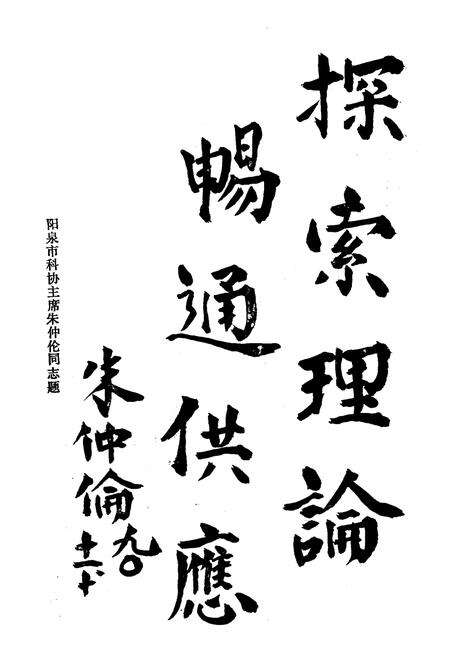 探索理論
暢通供應
朱仲倫
九〇
十一、十
阳泉市科协主席朱仲伦同志题